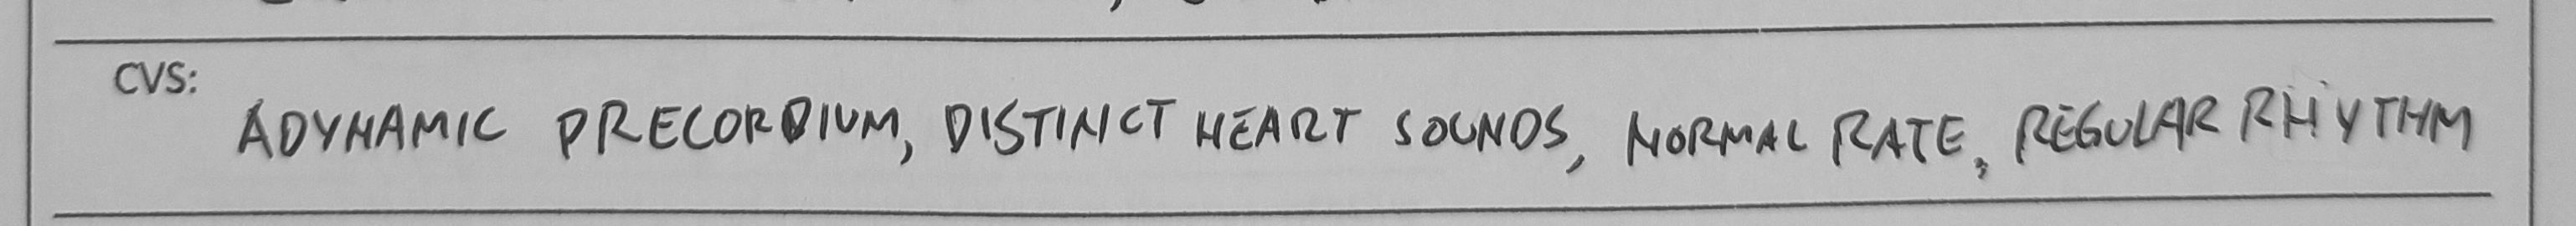 CVS:
ADYNAMIC PRECORDIUM, DISTINCT HEART SOUNDS, NORMAL RATE, REGULAR RHYTHM